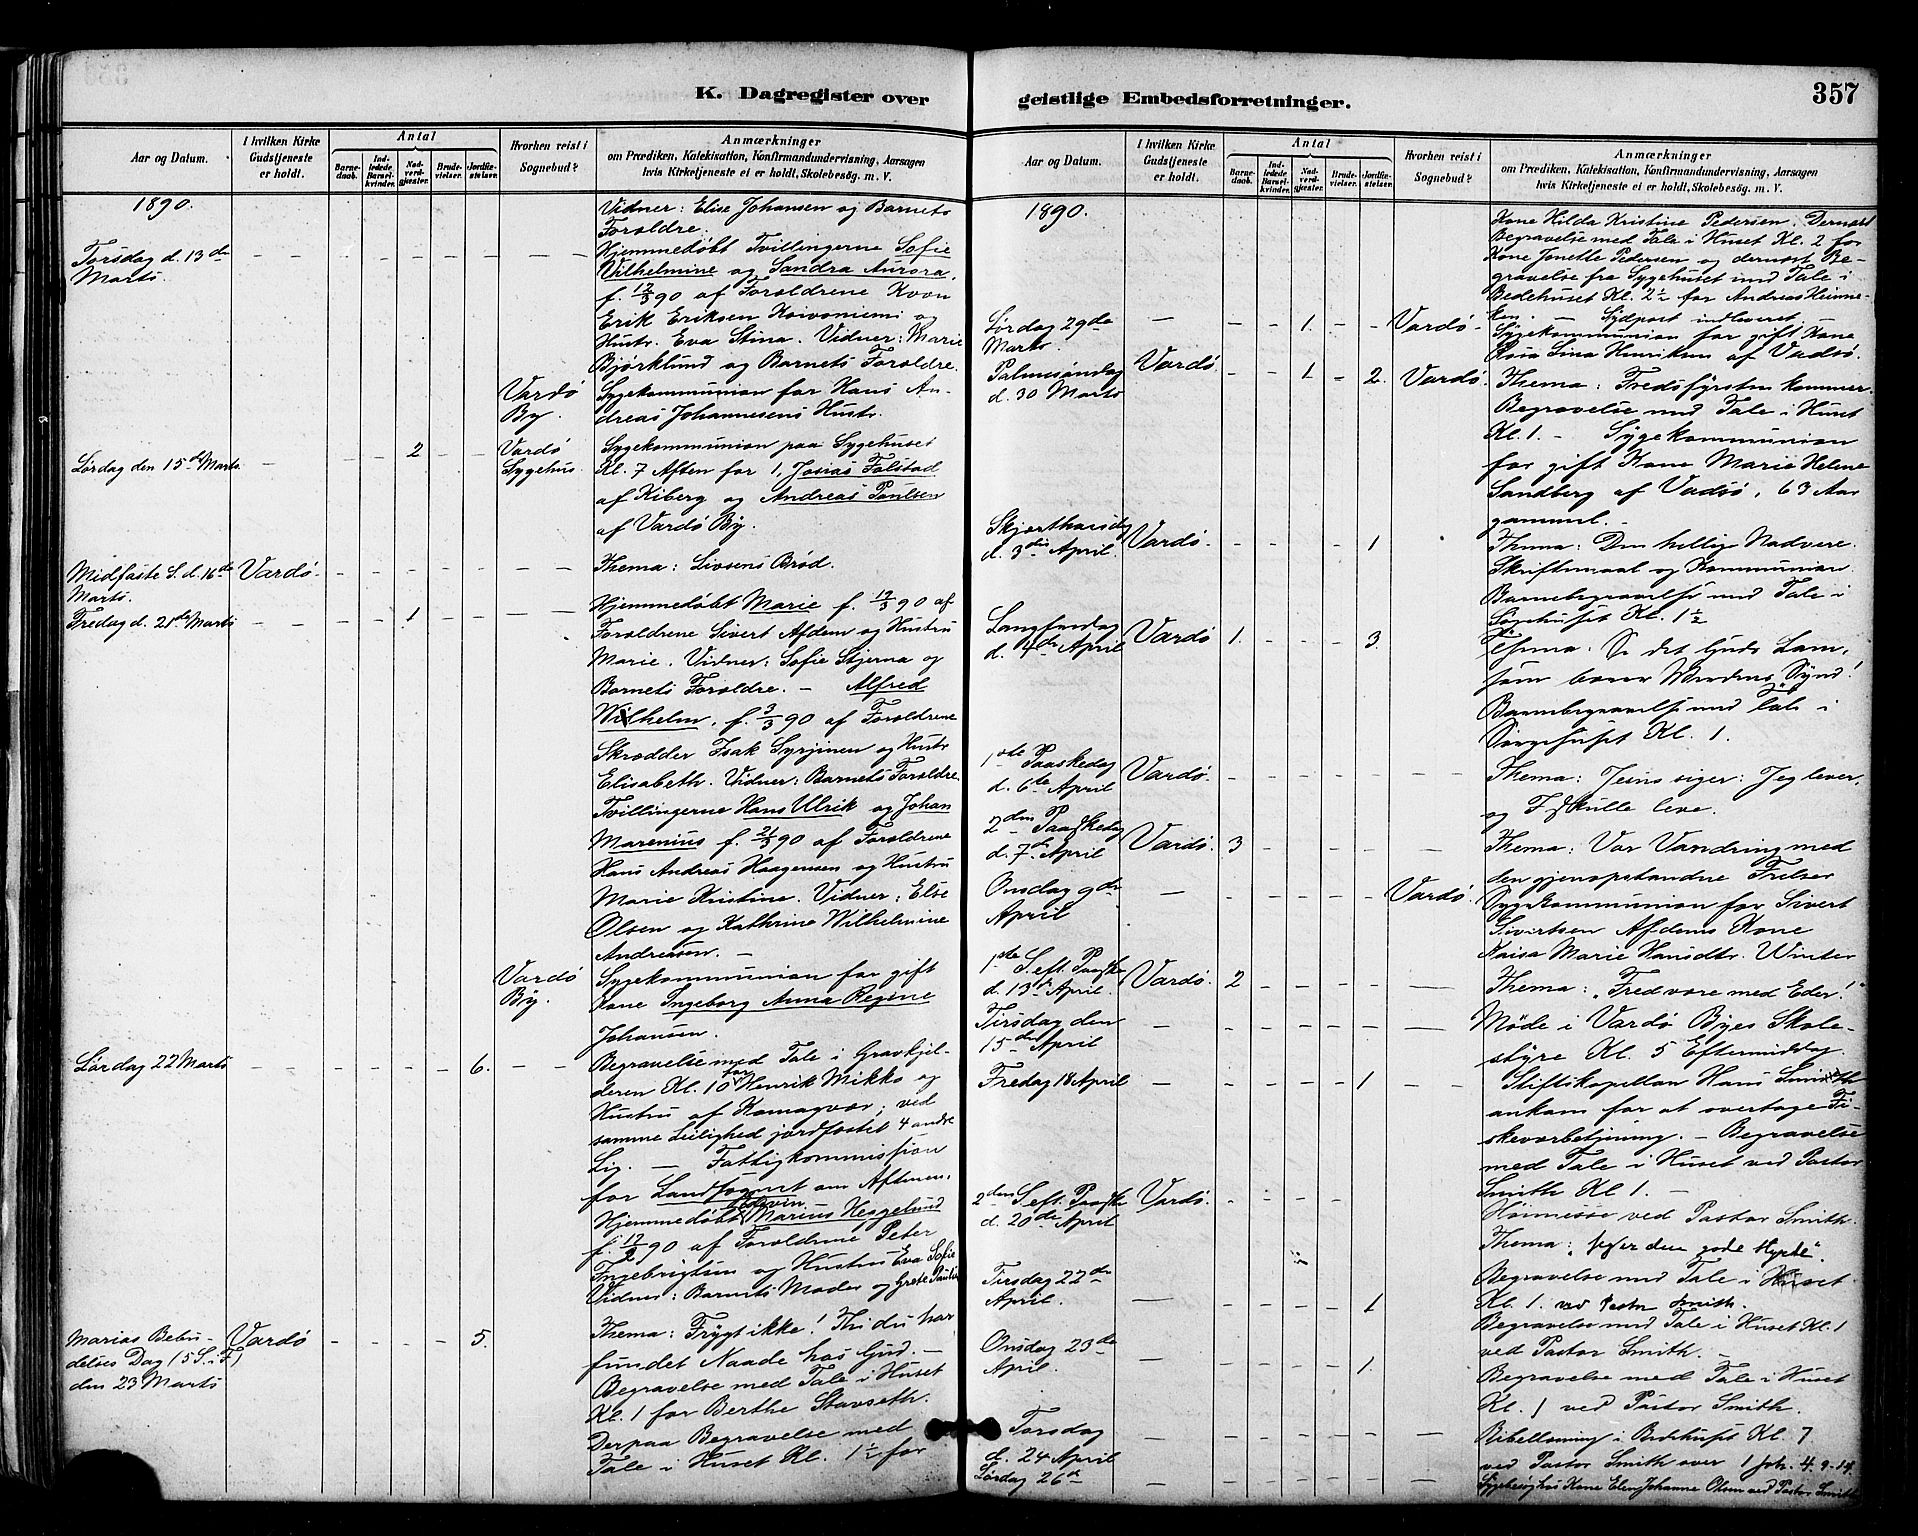 K. Dagregister over
Aar og Datum.
I hvilken Kirke
Gudstjeneste
er holdt.
Antal
Barne-
daab.
Ind-
ledede
Barsel-
kvinder.
Nad-
verd-
gjester.
Brude-
vielser.
Jordfæ-
stelser.
Hvorhen reist i
Sognebud?
Anmærkninger
om Prædiken, Katekisation, Konfirmandundervisning, Aarsagen
hvis Kirketjeneste ei er holdt, Skolebesøg. m. V.
1890.
Vidner: Elise Johansen og Barnets
Forældre.
Torsdag d. 13de
Marts.
Hjemmedøbt Tvillingerne Sofie
Vilhelmine og Sandra Aurora,
f. 12/3 90 af Forældrene Kvæn
Erik Eriksen Koivoniemi og
Hustr. Eva Stina. Vidner: Marie
Bjørklund og Barnets Forældre.
Vardø
By.
Sygekommunion for Hans An-
dreas Johannesens Hustr.
Lørdag den 15de Marts.
2
Vardø
Sygehus.
Sygekommunion paa Sygehuset
Kl. 7 Aften for 1, Josias Falstad
af Kiberg og Andreas Paulsen
af Vardø By.
Midfaste S. d. 16de
Marts.
Vardø
Thema: Livsens Brød.
Fredag d. 21de Marts
1
Hjemmedøbt Marie f. 19/3 90 af
Forældrene Sivert Afdem og Hustru
Marie. Vidner: Sofie Stjerna og
Barnets Forældre. – Alfred
Wilhelm, f. 3/3 90 af Forældrene
Skrædder Isak Syrjinen og Hustr
Elisabeth. Vidner: Barnets Forældre.
Tvillingerne Hans Ulrik og Johan
Marenius f. 21/3 90 af Forældrene
Hans Andreas Haagensen og Hustru
Marie Kristine. Vidner: Else
Olsen og Kathrine Wilhelmine
Andreasen. –
Vardø
By.
Sygekommunion for gift
Kone Ingeborg Anna Regine
Johansen.
Lørdag 22 Marts
6.
Begravelse med Tale i Gravkjel-
deren Kl. 10 for Henrik Mikko og
Hustru af Komagvær; ved
samme Leilighed jordfæstet 4 andre
Lig. – Fattigkommission
for Landsognet om Aftenen.
Hjemmedøbt Marius Heggelund
f. 17/2 90 af Forældrene Peter
Ingebrigtsen og Hustru Eva Sofie
Vidner: Barnets Moder og Grete
Marias Bebu-
delses Dag (5 S. i F)
den 23 Marts
Vardø
5.
Thema: Frygt ikke! Thi du har
fundet Naade hos Gud. –
Begravelse med Tale i Huset
Kl. 1 for Berthe Stavseth.
Derpaa Begravelse med
Tale i Huset Kl. 1½ for
geistlige Embedsforretninger.
357
Aar og Datum.
I hvilken Kirke
Gudstjeneste
er holdt.
Antal
Barne-
daab.
Ind-
ledede
Barsel-
kvinder.
Nad-
verd-
gjester.
Brude-
vielser.
Jordfæ-
stelser.
Hvorhen reist i
Sognebud?
Anmærkninger
om Prædiken, Katekisation, Konfirmandundervisning, Aarsagen
hvis Kirketjeneste ei er holdt, Skolebesøg. m. V.
1890.
Kone Hilda Kristine Pedersen. Dernæst
Begravelse med Tale i Huset Kl. 2 for
Kone Jonette Pedersen og dernæst Be-
gravelse fra Sygehuset med Tale i
Bedehuset Kl. 2½ for Andreas Heinne-
ken. – Sydpost indleveret –
Lørdag 29de
Marts.
1.
Vardø
Sygekommunion for gift Kone
Lina Henriksen af Vadsø.
Palmesøndag
d. 30 Marts
Vardø.
1
2.
Vardø.
Thema: Fredsfyrsten kommer.
Begravelse med Tale i Huset
Kl. 1. – Sygekommunion
for gift Kone Marie Helene
Sandberg af Vadsø, 63 Aar
gammel. –
Skjærthorsdag
d. 3die April.
Vardø.
1
Thema: Den hellig Nadvere.
Skriftemaal og Kommunion.
Barnebegravelse med Tale i
Sygehuset Kl. 1½
Langfredag
d. 4de April
Vardø
1.
3.
Thema: Se det Guds Lam,
som bærer Verdens Synd!
Barnebegravelse med Tale i
Sørgehuset Kl. 1.
1ste Paaskedag
d. 6te April
Vardø.
Thema: Jesus siger: Jeg lever,
og I skulle leve.
2den Paaskedag
d. 7de April
Vardø.
3
Thema: Vor Vandring med
den gjenopstandne Frelser
Onsdag 9de
April
Vardø.
Sygekommunion for Sivert
Sivertsen Afdems Kone
Kaisa Marie Hansdtr. Winter
1ste S. eft. Paaske
d. 13de April.
Vardø.
2
Thema: „Fred være med Eder!"
Tirsdag den
15den April
Møde i Vardø Byes Skole-
styre Kl. 5 Eftermiddag.
Fredag 18 April
1
Stiftskapellan Hans Smith
ankom for at overtage Fi-
skeværbetjening. – Begravelse
med Tale i Huset ved Pastor
Smith Kl 1. –
2den S. eft. Paaske
d. 20de April
Vardø.
Høimesse ved Pastor Smith.
Thema: „Jeg er den gode Hyrde".
Tirsdag 22de
April
1
Begravelse med Tale i Huset
Kl. 1. ved Pastor Smith.
Onsdag 23de
April.
1.
Begravelse med Tale i Huset Kl. 1
ved Pastor Smith. –
Begravelse med Tale i Huset
Kl. 1 ved Pastor Smith.
Torsdag
d. 24 April
Bibellæsning i Bedehuset Kl. 7
ved Pastor Smith over 1 Joh. 4. 9-14.
Lørdag 26de
Sygebesøg hos Kone Elen Johanne Olsen ved Pastor Smith